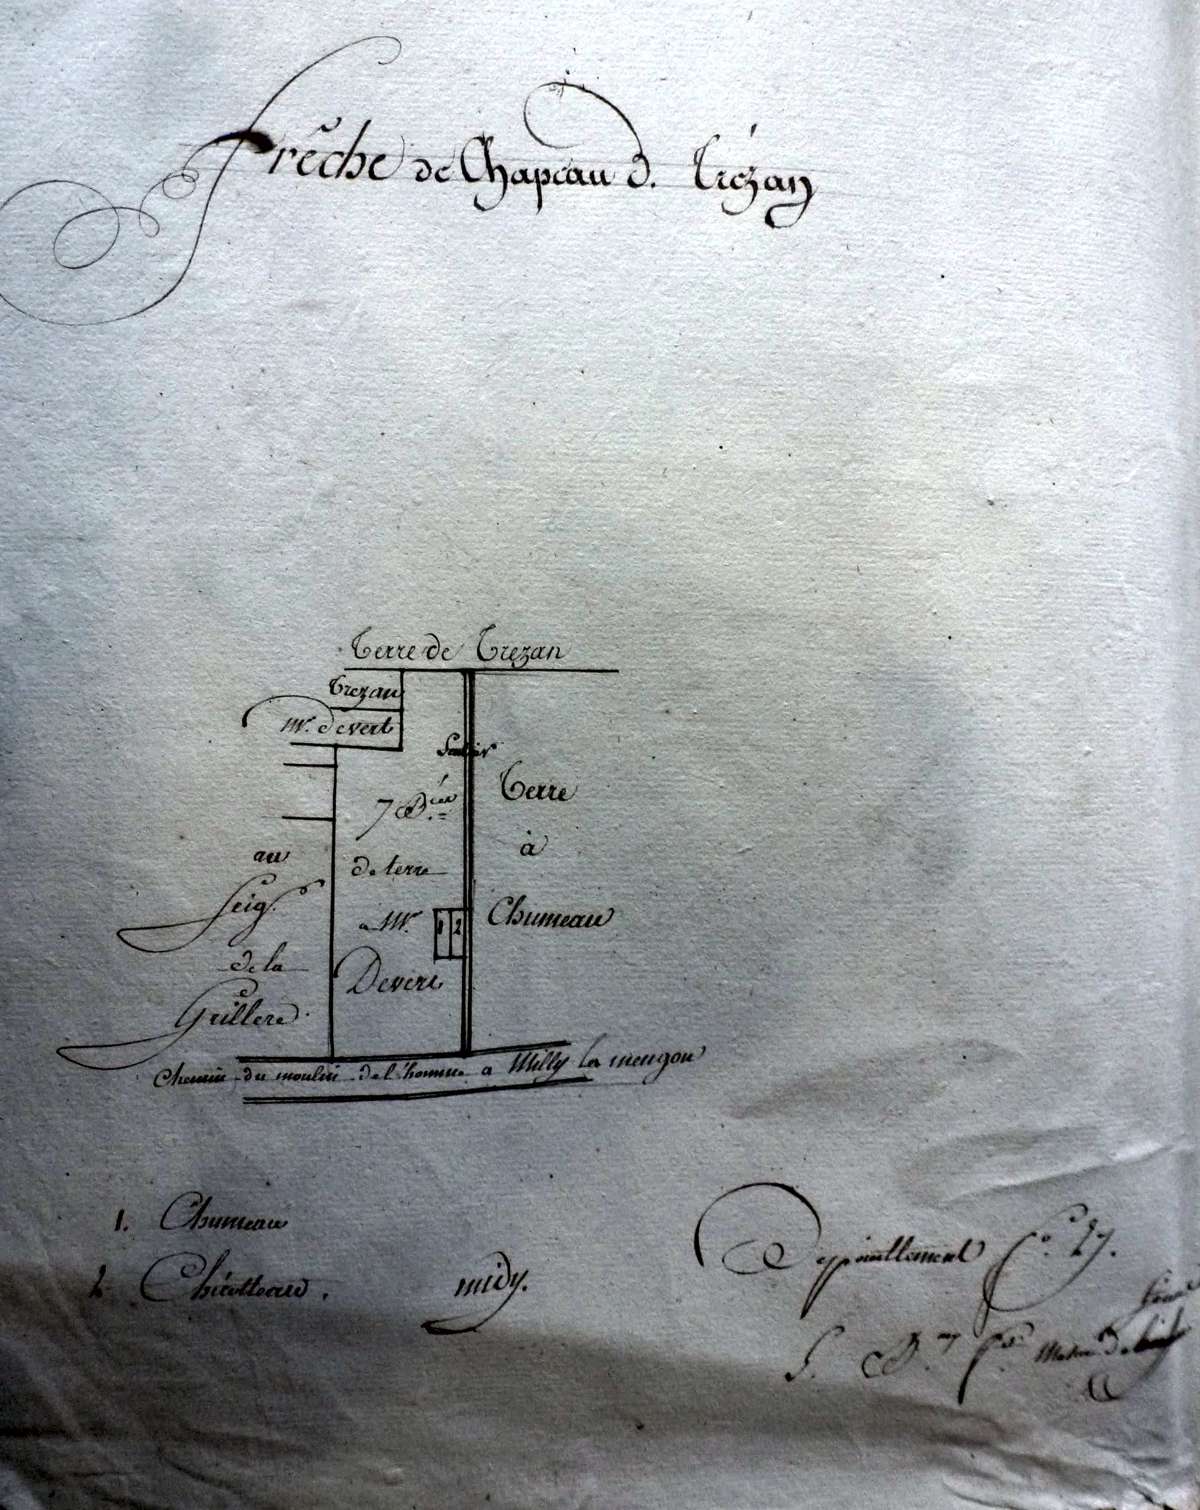 Frêche de Chapeau d. Trézan
Terre de Trezan
Trezan
Mr. devert
Sentier
7 B.ées
de terre
a Mr.
Devert
Terre
à
Chumeau
1 2
au
Seig.r
de la
Grillere
Chemin du moulin de l'homme a Milly la mengou
1. Chumeau
2. Chicotteau.
midy.
Depouillement f.o 27.